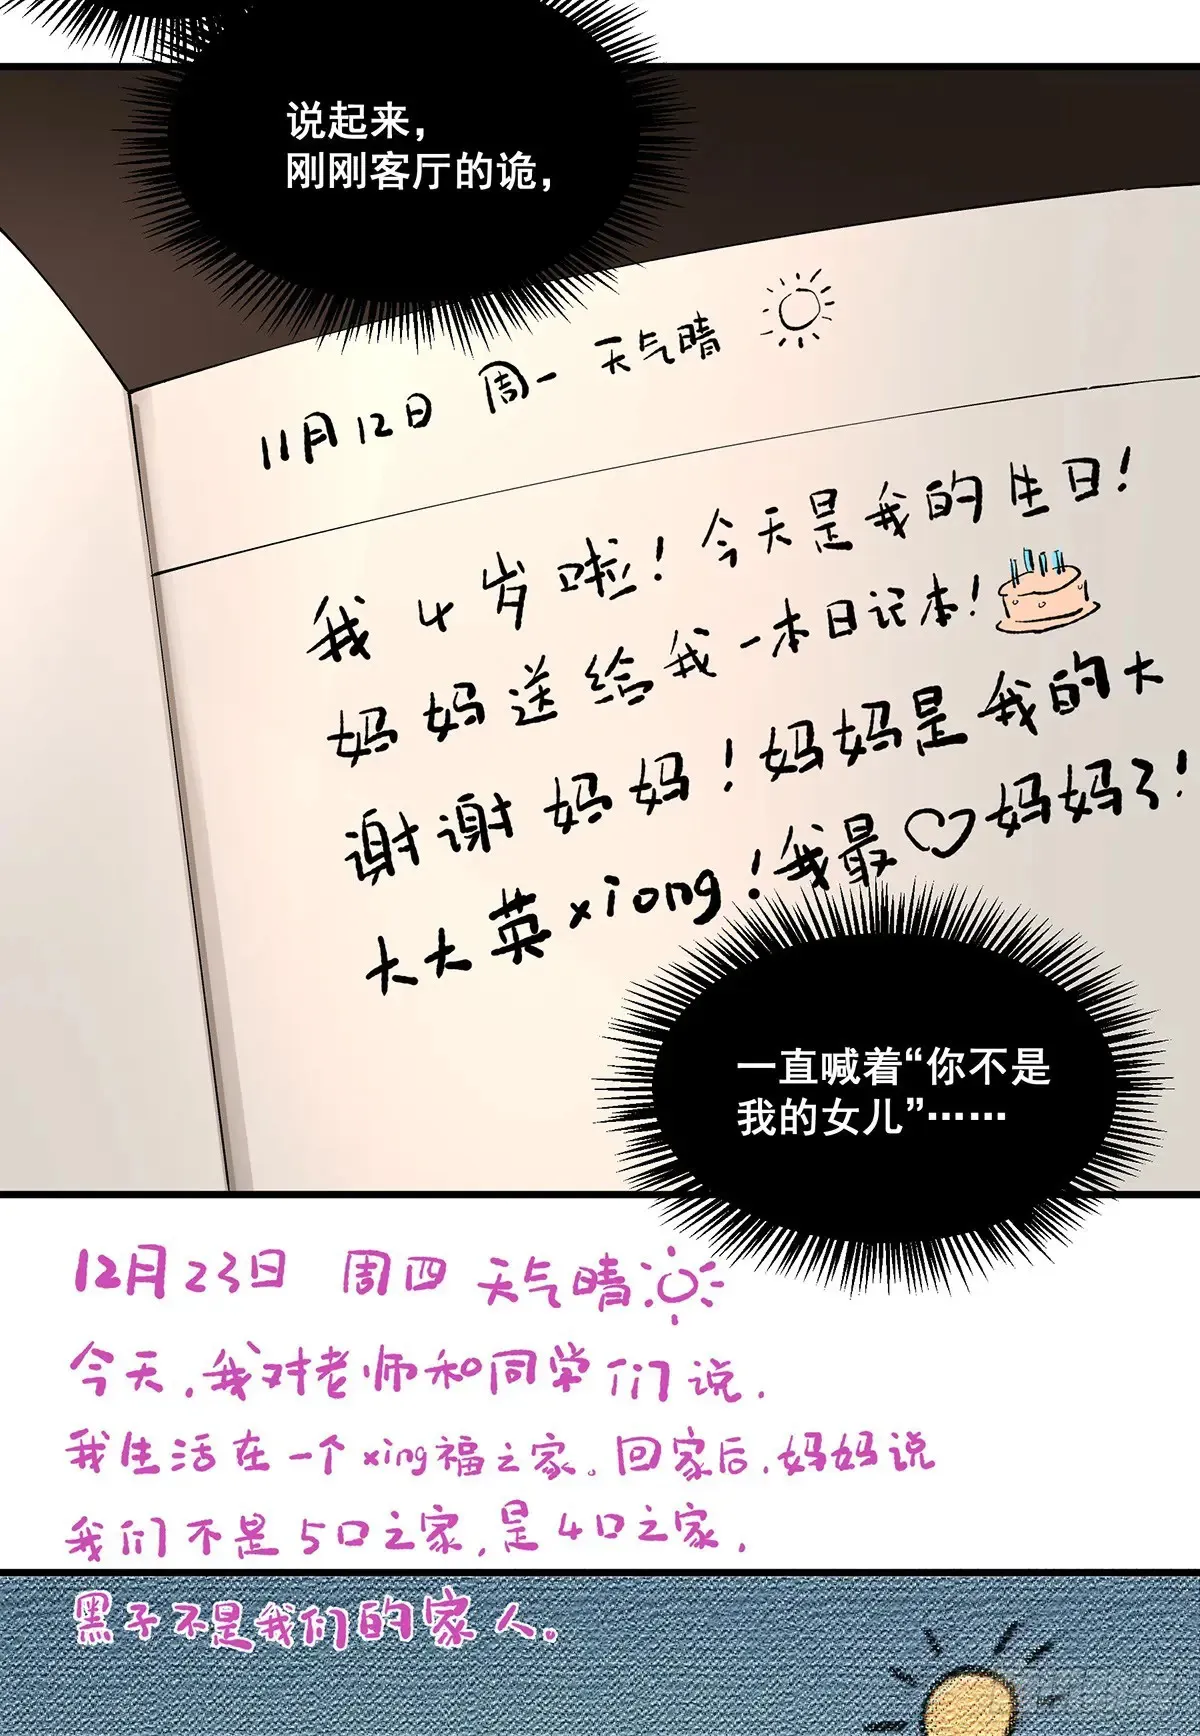 说起来，
刚刚客厅的诡，
11月12日 周一 天气晴
我4岁啦！今天是我的生日！
妈妈送给我一本日记本！
谢谢妈妈！妈妈是我的大
大大英xiong！我最♡妈妈了！
一直喊着“你不是
我的女儿”……
12月23日 周四 天气晴
今天，我对老师和同学们说，
我生活在一个xing福之家。回家后，妈妈说
我们不是5口之家，是4口之家，
黑子不是我们的家人。